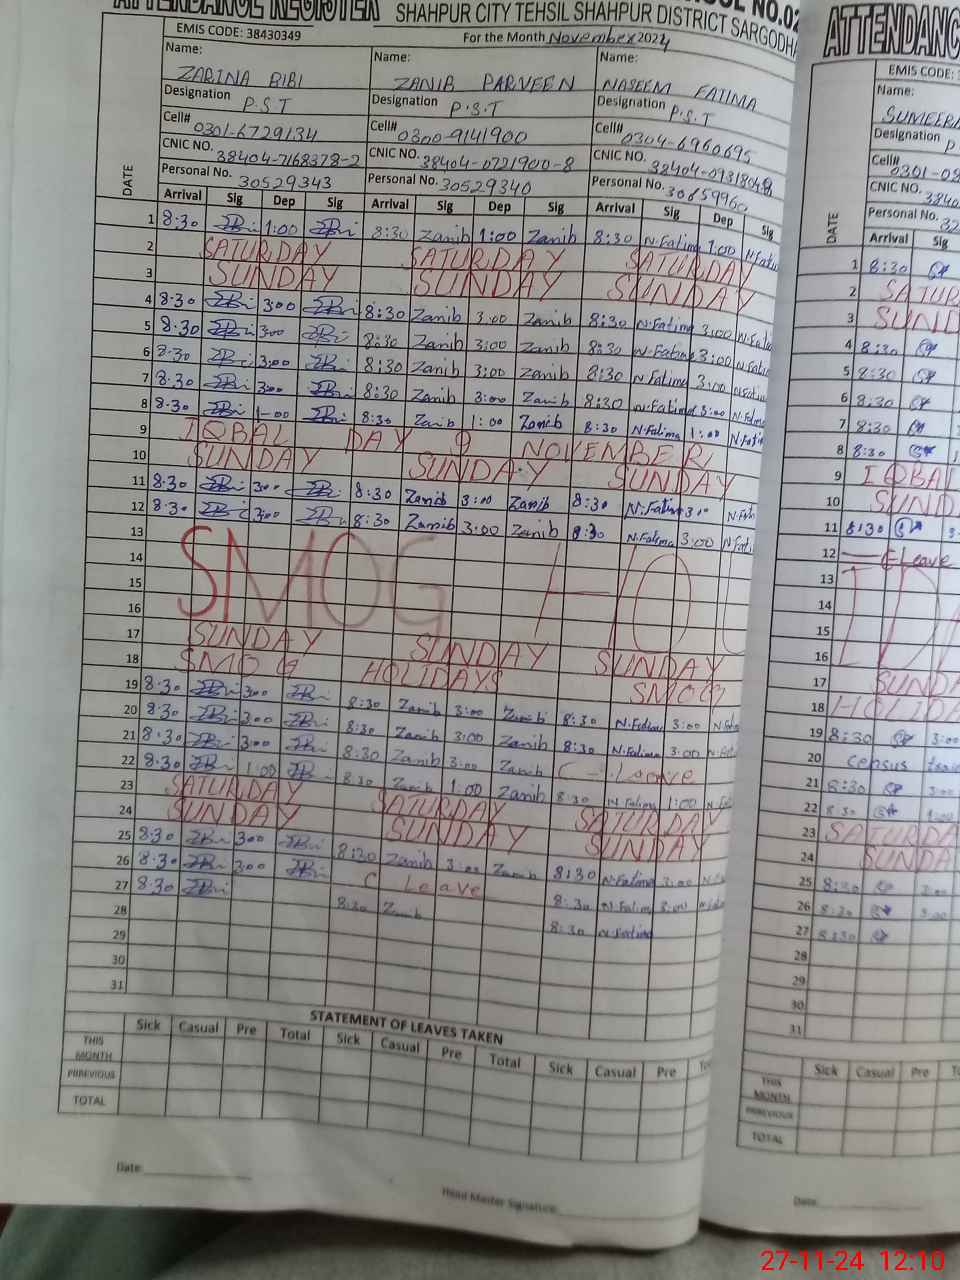 ATTENDANCE REGISTER
NO.02
SHAHPUR CITY TEHSIL SHAHPUR DISTRICT SARGODHA
EMIS CODE: 38430349
For the Month November 2024
Name: ZARINA BIBI Name: ZANIB PARVEEN Name: NASEEM FATIMA
Designation P.S.T Designation P.S.T Designation P.S.T
Cell# 0301-6729134 Cell# 0300-9141900 Cell# 0304-6960695
CNIC NO. 38404-7168378-2 CNIC NO. 38404-0721900-8 CNIC NO.
Personal No. 30529343 Personal No. 30529340 Personal No. 30659960
DATE Arrival Sig Dep Sig Arrival Sig Dep Sig Arrival Sig Dep Sig
1 8:30 1:00 8:30 Zanib 1:00 Zanib 8:30 N.Fatima 1:00
2 SATURDAY SATURDAY SATURDAY
3 SUNDAY SUNDAY SUNDAY
4 8:30 3:00 8:30 Zanib 3:00 Zanib 8:30 N.Fatima 3:00
5 8:30 3:00 8:30 Zanib 3:00 Zanib 8:30 N.Fatima 3:00
6 8:30 3:00 8:30 Zanib 3:00 Zanib 8:30 N.Fatima 3:00
7 8:30 3:00 8:30 Zanib 3:00 Zanib 8:30 N.Fatima 3:00
8 8:30 1:00 8:30 Zanib 1:00 Zanib 8:30 N.Fatima 1:00
9 IQBAL DAY 9 NOVEMBER
10 SUNDAY SUNDAY SUNDAY
11 8:30 3:00 8:30 Zanib 3:00 Zanib 8:30 N.Fatima 3:00
12 8:30 3:00 8:30 Zanib 3:00 Zanib 8:30 N.Fatima 3:00
13
14 SMOG HO
15
16
17 SUNDAY SUNDAY SUNDAY
18 SMOG HOLIDAYS SMOG
19 8:30 3:00 8:30 Zanib 3:00 Zanib 8:30 N.Fatima 3:00
20 8:30 3:00 8:30 Zanib 3:00 Zanib 8:30 N.Fatima 3:00
21 8:30 3:00 8:30 Zanib 3:00 Zanib C - Leave
22 8:30 1:00 8:30 Zanib 1:00 Zanib 8:30 N.Fatima 1:00
23 SATURDAY SATURDAY SATURDAY
24 SUNDAY SUNDAY SUNDAY
25 8:30 3:00 8:30 Zanib 3:00 Zanib 8:30 N.Fatima 3:00
26 8:30 3:00 C Leave 8:30 N.Fatima 3:00
27 8:30 8:30 Zanib 8:30 N.Fatima
28
29
30
31
STATEMENT OF LEAVES TAKEN
Sick Casual Pre Total Sick Casual Pre Total Sick Casual Pre
THIS MONTH
PREVIOUS
TOTAL
Date:
Head Master Signature
ATTENDANC
EMIS CODE:
Name:
SUMEERA
Designation P
Cell# 0301-08
CNIC NO. 3840
Personal No. 32
DATE Arrival Sig
1 8:30
2 SATUR
3 SUND
4 8:30
5 8:30
6 8:30
7 8:30
8 8:30
9 IQBAL
10 SUND
11 8:30 3-
12 C Leave
13
14
15
16
17 SUNDA
18 HOLIDA
19 8:30 3:00
20 census
21 8:30 3:00
22 8:30 1:00
23 SATURDA
24 SUNDA
25 8:30 3:00
26 8:30 3:00
27 8:30
28
29
30
31
Sick Casual Pre
THIS MONTH
PREVIOUS
TOTAL
Date:
27-11-24 12:10